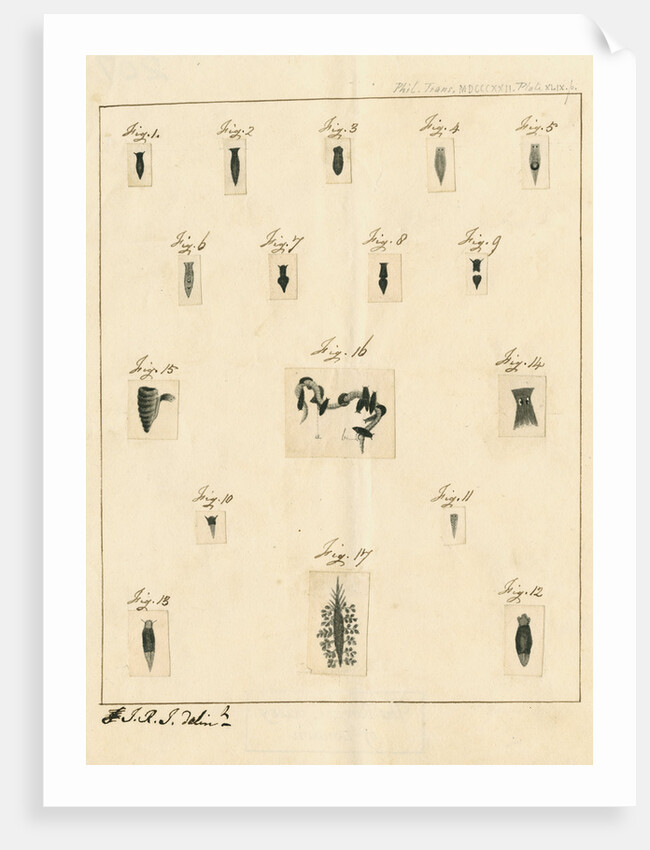 Phil. Trans. MDCCCXXII. Plate XLIX.
Fig. 1. Fig. 2 Fig. 3 Fig. 4 Fig. 5
Fig. 6 Fig. 7 Fig. 8 Fig. 9
Fig. 15 Fig. 16 Fig. 14
a b
Fig. 10 Fig. 11
Fig. 17
Fig. 13 Fig. 12
J. R. J. delint